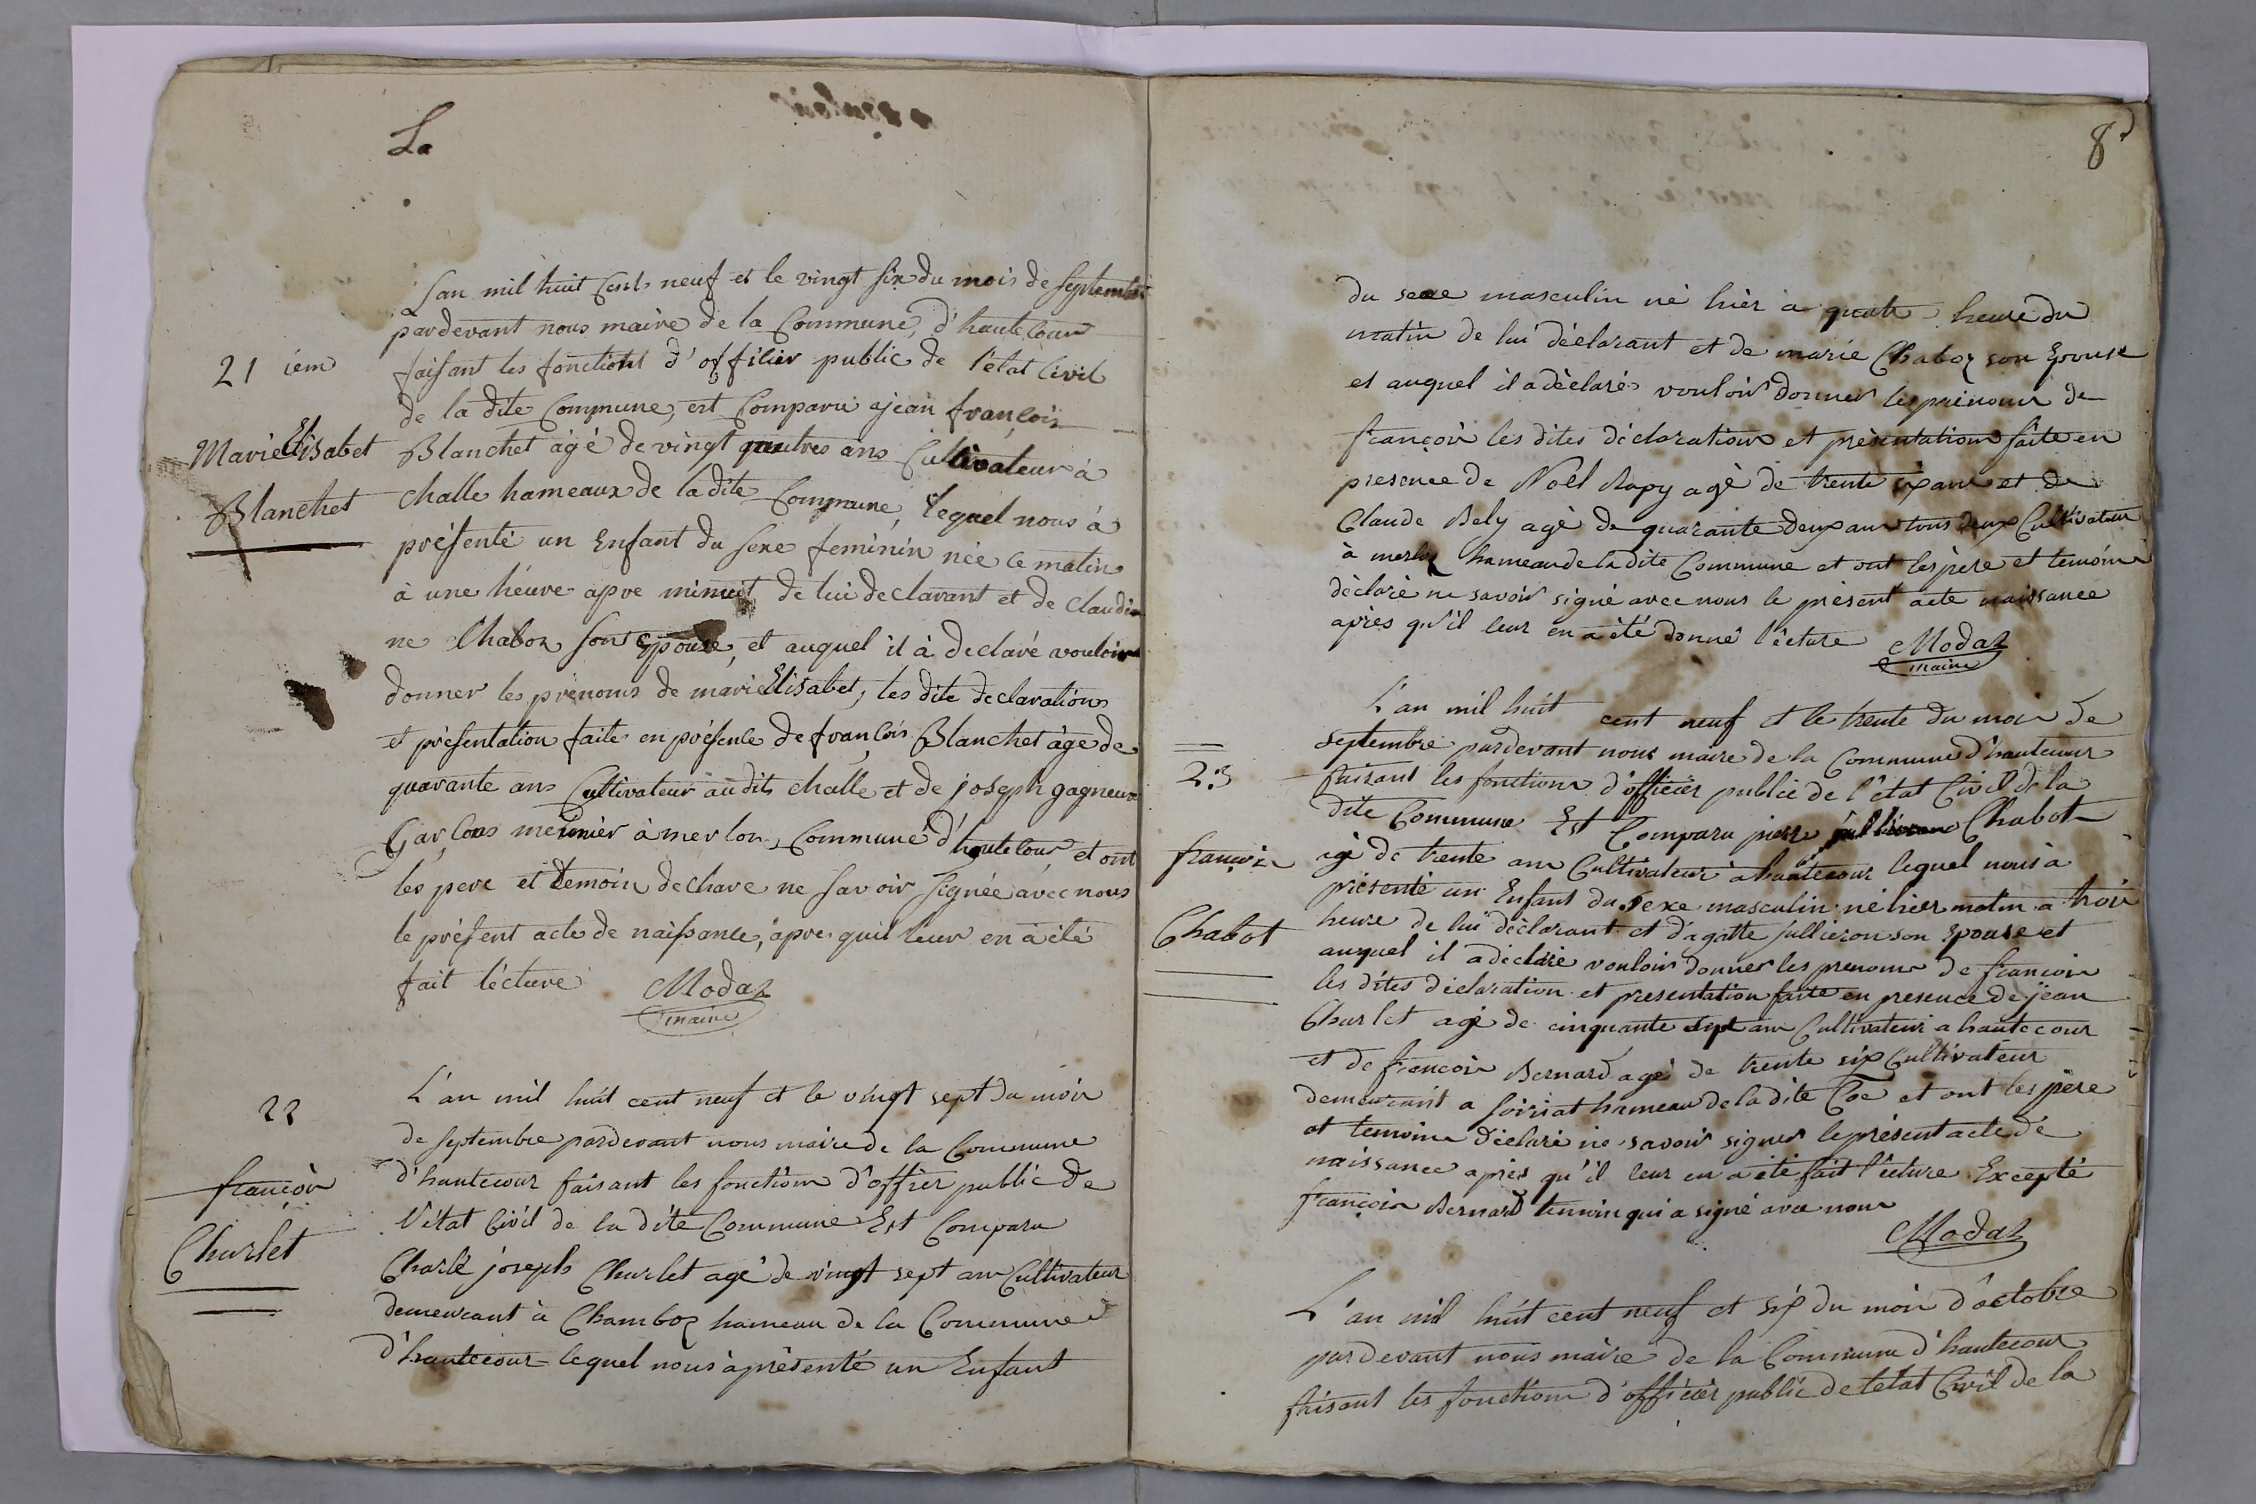 La
L'an mil huit Cents neuf et le vingt six du mois de septembre
pardevant nous maire de la Commune, d'hautecour
21 iem
faisant les fonctions d'officier public de l'état Civil
de la dite Commune, est Comparu ajean françois
Marie Elisabet
Blanchet
Blanchet âgé de vingt quatres ans Cultivateur à
challe hameaux de ladite Commune, lequel nous à
présenté un Enfant du sexe feminin née le matin
à une héure apre minuit de lui declarant et de claudi
ne Chaboz son Epouse, et auquel il à declaré vouloir
donner les prénoms de marie Elisabet, les dite declarations
et présentation faite en présence de françois Blanchet âge de
quarante ans Cultivateur audit challe et de joseph gagneux
Garçons meunièr à merloz, Commune d'hautecour et ont
les pere et temoin declare ne savoir signée avec nous
le présent acte de naissance, apre quil leur en à été
fait lécture
Modaz
maire
22
françois
Charlet
L'an mil huit cent neuf et le vingt sept du mois
de septembre pardevant nous maire de la Commune
d'hautecour faisant les fonctions d'offier public de
l'état Civil de la dite Commune Est Comparu
Charle joseph Charlet agé de vingt sept ans Cultivateur
demeurant à Chamboz hameau de la Commune
d'hautecour lequel nous à présenté un Enfant
8
du sexe masculin né hièr a quatre heure du
matin de lui déclarant et de marie Chaboz son Epouse
et auquel il a déclaré vouloir donner les prénoms de
françois les dites déclarations et présentations faite en
presence de Noël Rapy agé de trente six ans et de
Claude Bely agé de quarante deux ans tous deux Cultivateur
à merloz hameau de la dite Commune et ont les père et temoins
déclaré ne savoir signé avec nous le présent acte naissance
après qu'il leur en a été donné l'écture
Modaz
maire
23
françois
Chabot
L'an mil huit cent neuf et le trente du mois de
septembre pardevant nous maire de la Commune d'hautecour
faisant les fonctions d'officier public de l'état Civil de la
dite Commune Est Comparu pierre Chabot
agé de trente ans Cultivateur à hautecour lequel nous à
présenté un Enfant du sexe masculin né hier matin a trois
heure de lui déclarant et d'agatte jullieron son Epouse et
auquel il a déclaré vouloir donner les prenoms de françois
les dites déclaration et presentation faite en presence de jean
Charlet agé de cinquante sept ans Cultivateur a hautecour
et de françois Bernard agé de trente six Cultivateur
demeurant a soiriat hameau de la dite Coe et ont les père
et temoins déclaré ne savoir signer le présent acte de
naissance après qu'il leur en a été fait l'écture Excepté
françois Bernard temoin qui a signé avec nous
Modaz
L'an mil huit cent neuf et six du mois d'octobre
pardevant nous maire de la Commune d'hautecour
faisant les fonctions d'officièr public de letat Civil de la